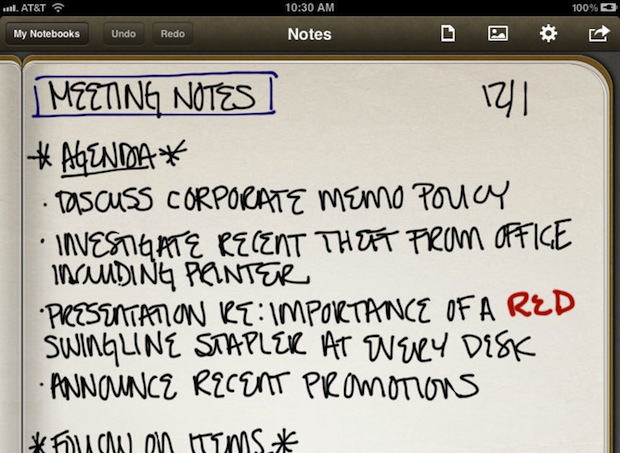 AT&T 10:30 AM 100%
My Notebooks Undo Redo Notes
MEETING NOTES 12/1
*AGENDA*
· DISCUSS CORPORATE MEMO POLICY
· INVESTIGATE RECENT THEFT FROM OFFICE
INCLUDING PRINTER
· PRESENTATION RE: IMPORTANCE OF A RED
SWINGLINE STAPLER AT EVERY DESK
· ANNOUNCE RECENT PROMOTIONS
*FOLLOW ON ITEMS*